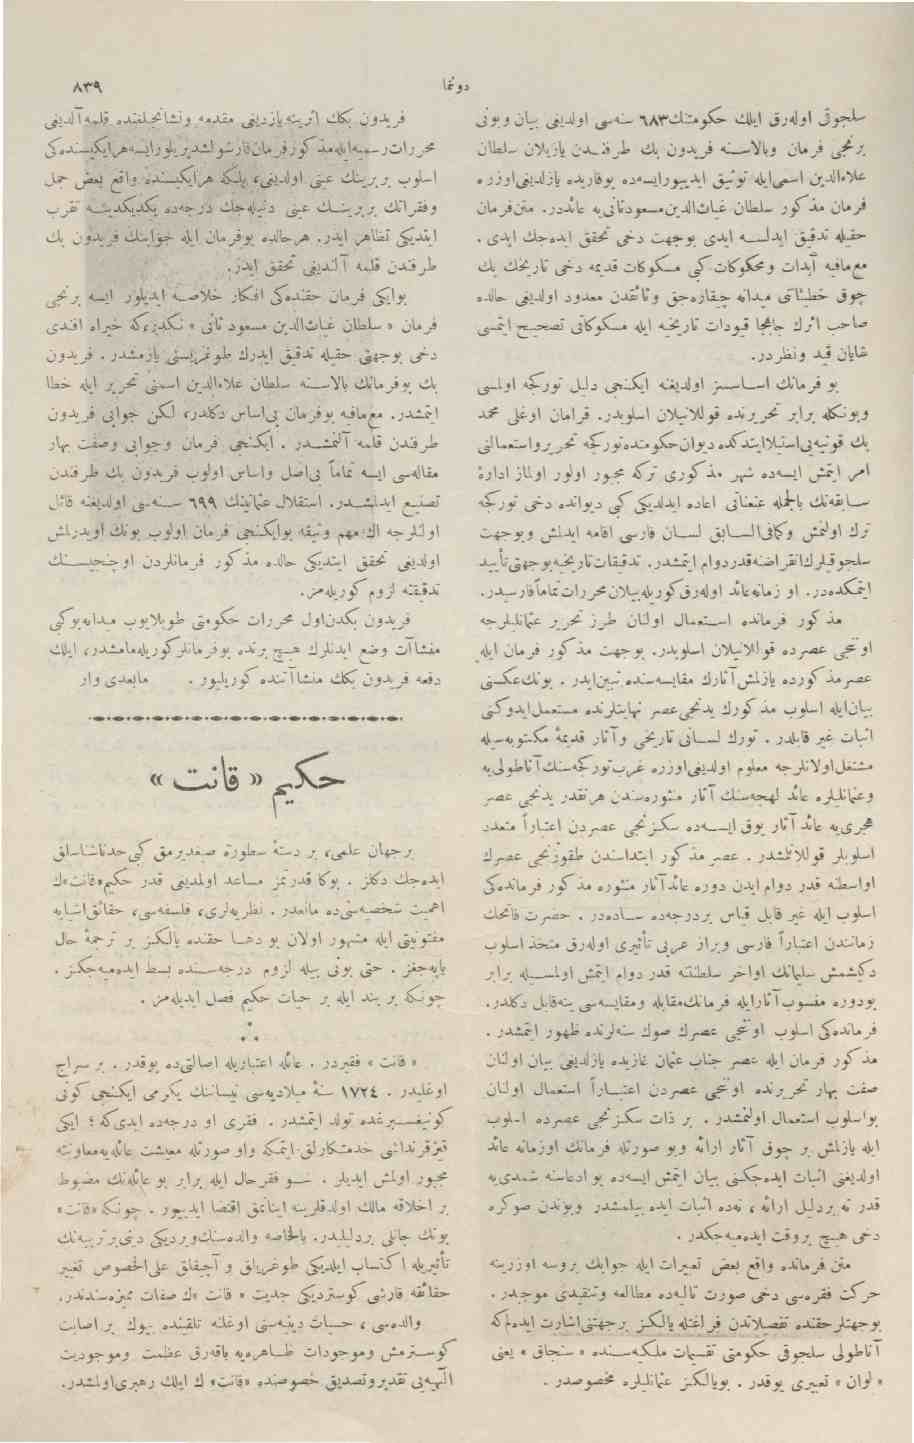 دونما
٨٣٩
سلجوقی اولهرق ایلك حكومتنك ٦٨٣ سنهسی اولدیغی بیان وبونی
برنجی فرمان وبالاسنه فریدون بك طرفندن یازیلان سلطان
علاءالدین اسمی ایله توثیق ایدییورایسهده بوفاریده یازلدیغی اوزره
فرمان مذكور سلطان غیاث الدین مسعود ثانی یه عائددر. متن فرمان
حقیله تدقیق ایدلسه ایدی بوجهت دخی تحقق ایدهجك ایدی .
مع مافیه آبدات ومحكوكات كبی مسكوكات قدیمه دخی تاریخك پك
چوق خطیئاتی میدانه چیقارهجق وثائقدن معدود اولدیغی حالده
صاحب اثرك جابجا قیودات تاریخیه ایله مسكوكاتی تصحیح ایتمسی
شایان قید ونظردر.
بو فرمانك اساسسز اولدیغنه ایكنجی دلیل توركجه اولمسی
وبونكله برابر تحریرنده قوللانیلان اسلوبدر. قرامان اوغلی محمد
بك قونیه یی استیلا ایتدكده دیوان حكومتده توركجه تحریر واستعمالنی
امر ایتمش ایسهده شهر مذكوری تركه مجبور اولور اولماز ادارۀ
سابقه نك بالجمله عنعناتی اعاده ایدلدیكی كبی دیوانده دخی توركجه
ترك اولنمش وكمافی السابق لسان فارسی اقامه ایدلمش وبوجهت
سلجوقیلرك انقراضنه قدر دوام ایتمشدر. تدقیقات تاریخیه بوجهتی تأیید
ایتمكدهدر. او زمانه عائد اولهرق كوریله بیلان محررات تماماً فارسیدر.
مذكور فرمانده استعمال اولنان طرز تحریر عثمانلیلرجه
اوننجی عصرده قوللانیلان اسلوبدر. بوجهت مذكور فرمان ایله
عصر مذكورده یازلمش آثارك مقایسهسنده تبین ایدر. بونك عكسنی
بیان ایله اسلوب مذكورك یدنجی عصر نهایتلرنده مستعمل ایدوكنی
اثبات غیر قابلدر. تورك لسانی تاریخی وآثار قدیمۀ مكتوبهسیله
مشتغل اولانلرجه معلوم اولدیغی اوزره غرب توركجهسنك آناطولی یه
وعثمانلیلره عائد لهجهسنك آثار منثورهسندن هرنقدر یدنجی عصر
هجری یه عائد آثار یوق ایسهده سكزنجی عصردن اعتباراً متعدد
اسلوبلر قوللانلمشدر. عصر مذكور ابتداسندن طقوزنجی عصرك
اواسطنه قدر دوام ایدن دوره عائد آثار منثوره مذكور فرمانده كی
اسلوب ایله غیر قابل قیاس بردرجهده سادهدر. حضرت فاتحك
زمانندن اعتباراً فارسی وبراز عربی تأثیری اولهرق متخذ اسلوب
دكیشمش سلیمانك اواخر سلطنتنه قدر دوام ایتمش اولمسیله برابر
بودوره منسوب آثار ایله فرمانك مقابله ومقایسهسی ینه قابل دكلدر.
فرمانده كی اسلوب اوننجی عصرك صوك سنهلرنده ظهور ایتمشدر.
مذكور فرمان ایله عصر جناب عثمان غازیده یازلدیغی بیان اولنان
صفت بهار تحریرنده اوننجی عصردن اعتباراً استعمال اولنان
بواسلوب استعمال اولنمشدر. بر ذات سكزنجی عصرده اسلوب
ایله یازلمش بر چوق آثار ارائه وبو صورتله فرمانك اوزمانه عائد
اولدیغنی اثبات ایدهجكنی بیان ایتمش ایسهده بو ادعاسنه شمدی یه
قدر نه بردلیل ارائه، نهده اثبات ایده بیلمشدر وبوندن صوكره
دخی هیچ بروقت ایدهمیهجكدر.
متن فرمانده واقع بعض تعبیرات ایله جوابك بروسه اوزرینه
حركت فقرهسی دخی صورت تالیهده مطالعه وتنقیدی موجبدر.
بوجهتلر حقنده تفصیلاتدن فراغتله یالكز برجهتنی اشارت ایدهلم كه
آناطولی سلجوقی حكومتی تقسیمات ملكیهسنده « سنجاق » یعنی
« لوا » تعبیری یوقدر. بو یالكز عثمانلیلره مخصوصدر.
فریدون بكك اثرینه یازدیغی مقدمه ونشانجیلغنده قلمه آلدیغی
محررات رسمیه ایله مذكور فرمان قارشولشدیریلور ایسه هر ایكیسنده كی
اسلوب بربرینك عینی اولدیغی، بلكه هر ایكیسنده واقع بعض جمل
وفقراتك بربرینك عینی دنیلهجك درجهده یكدیكرینه تقرب
ایتدیكی تظاهر ایدر. هرحالده بوفرمان ایله جوابنك فریدون بك
طرفندن قلمه آلندیغی تحقق ایدر.
بوایكی فرمان حقنده كی افكار خلاصه ایدیلور ایسه برنجی
فرمان « سلطان غیاث الدین مسعود ثانی » نكدر كه خیرالله افندی
دخی بوجهتی حقیله تدقیق ایدرك طوغریسنی یازمشدر. فریدون
بك بوفرمانك بالاسنه سلطان علاءالدین اسمنی تحریر ایله خطا
ایتمشدر. مع مافیه بوفرمان بی اساس دكلدر، لكن جوابی فریدون
طرفندن قلمه آلنمشدر. ایكنجی فرمان وجوابی وصفت بهار
مقالهسی ایسه تماماً بی اصل واساس اولوب فریدون بك طرفندن
تصنیع ایدلمشدر. استقلال عثمانینك ٦٩٩ سنهسی اولدیغنه قائل
اولنلرجه اك مهم وثیقه بوایكنجی فرمان اولوب بونك اویدرلمش
اولدیغی تحقق ایتدیكی حالده مذكور فرمانلردن اوچنجیسنك
تدقیقنه لزوم كوریلهمز.
فریدون بكدن اول محررات حكومتی طوپلایوب میدانه بوكبی
منشاآت وضع ایدنلرك هیچ برنده بوفرمانلر كوریلهمامشدر، ایلك
دفعه فریدون بكك منشاآتنده كوریلیور. مابعدی وار
حكیم « قانت »
برجهان علمی، بر دستۀ سطوره صیغدیرمق كبی حدناشناسلق
ایدهجك دكلز. بوكا قدرتمز مساعد اولمدیغی قدر حكیم « قانت » ك
اهمیت شخصیهسی ده مانعدر. نظریهلری، فلسفهسی، حقائق اشیایه
مفتونیتی ایله مشهور اولان بو دها حقنده یالكز بر ترجمۀ حال
یاپهجغز. حتی بونی بیله لزوم درجهسنده بسط ایدهمیهجكز.
چونكه بر بند ایله بر حیات حكیم فصل ایدیلهمز.
« قانت » فقیردر. عائله اعتباریله اصالتی ده یوقدر. بر سراج
اوغلیدر. ١٧٢٤ سنۀ میلادیهسی نیساننك یكرمی ایكنجی كونی
كونیغسبرغده تولد ایتمشدر. فقری او درجهده ایدی كه ؛ ایكی
قیز قرنداشی خدمتكارلق ایتمكه واو صورتله معیشت عائله یه معاونته
مجبور اولمش ایدیلر. شو فقر حال ایله برابر بو عائلهنك مضبوط
بر اخلاقه مالك اولدقلرینه اینانمق اقتضا ایدییور. چونكه « قانت »
بونك جانلی بردلیلیدر. بالخاصه والدهسنك ویردیكی دینی بر تربیهنك
تأثیریله اكتساب ایلدیكی طوغریلق و آچیقلق علی الخصوص تغییر
حقائقه قارشی كوستردیكی جدیت « قانت » ك صفات ممیزهسندندر.
والدهسی، حسیات دینیهسنی اوغلنه تلقینده بیوك بر اصابت
كوسترمش وموجودات ظاهرهیه باقهرق عظمت وموجودیت
الٓهیهیی تقدیر وتصدیق خصوصنده « قانت » ك ایلك رهبری اولمشدر.